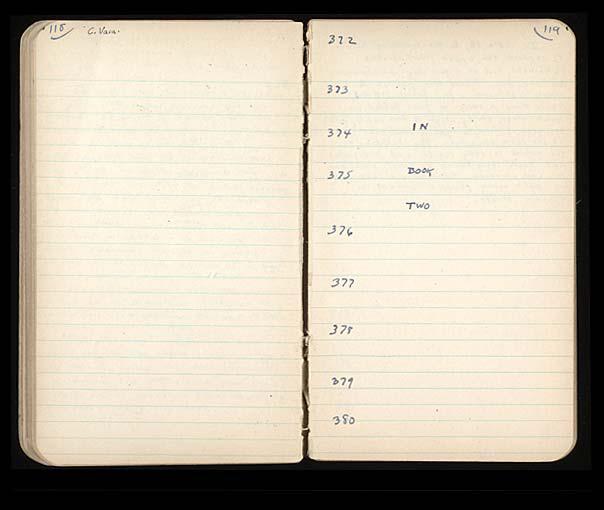 118
C. Vaia.
119
372
373
374 IN
375 BOOK
TWO
376
377
378
379
380